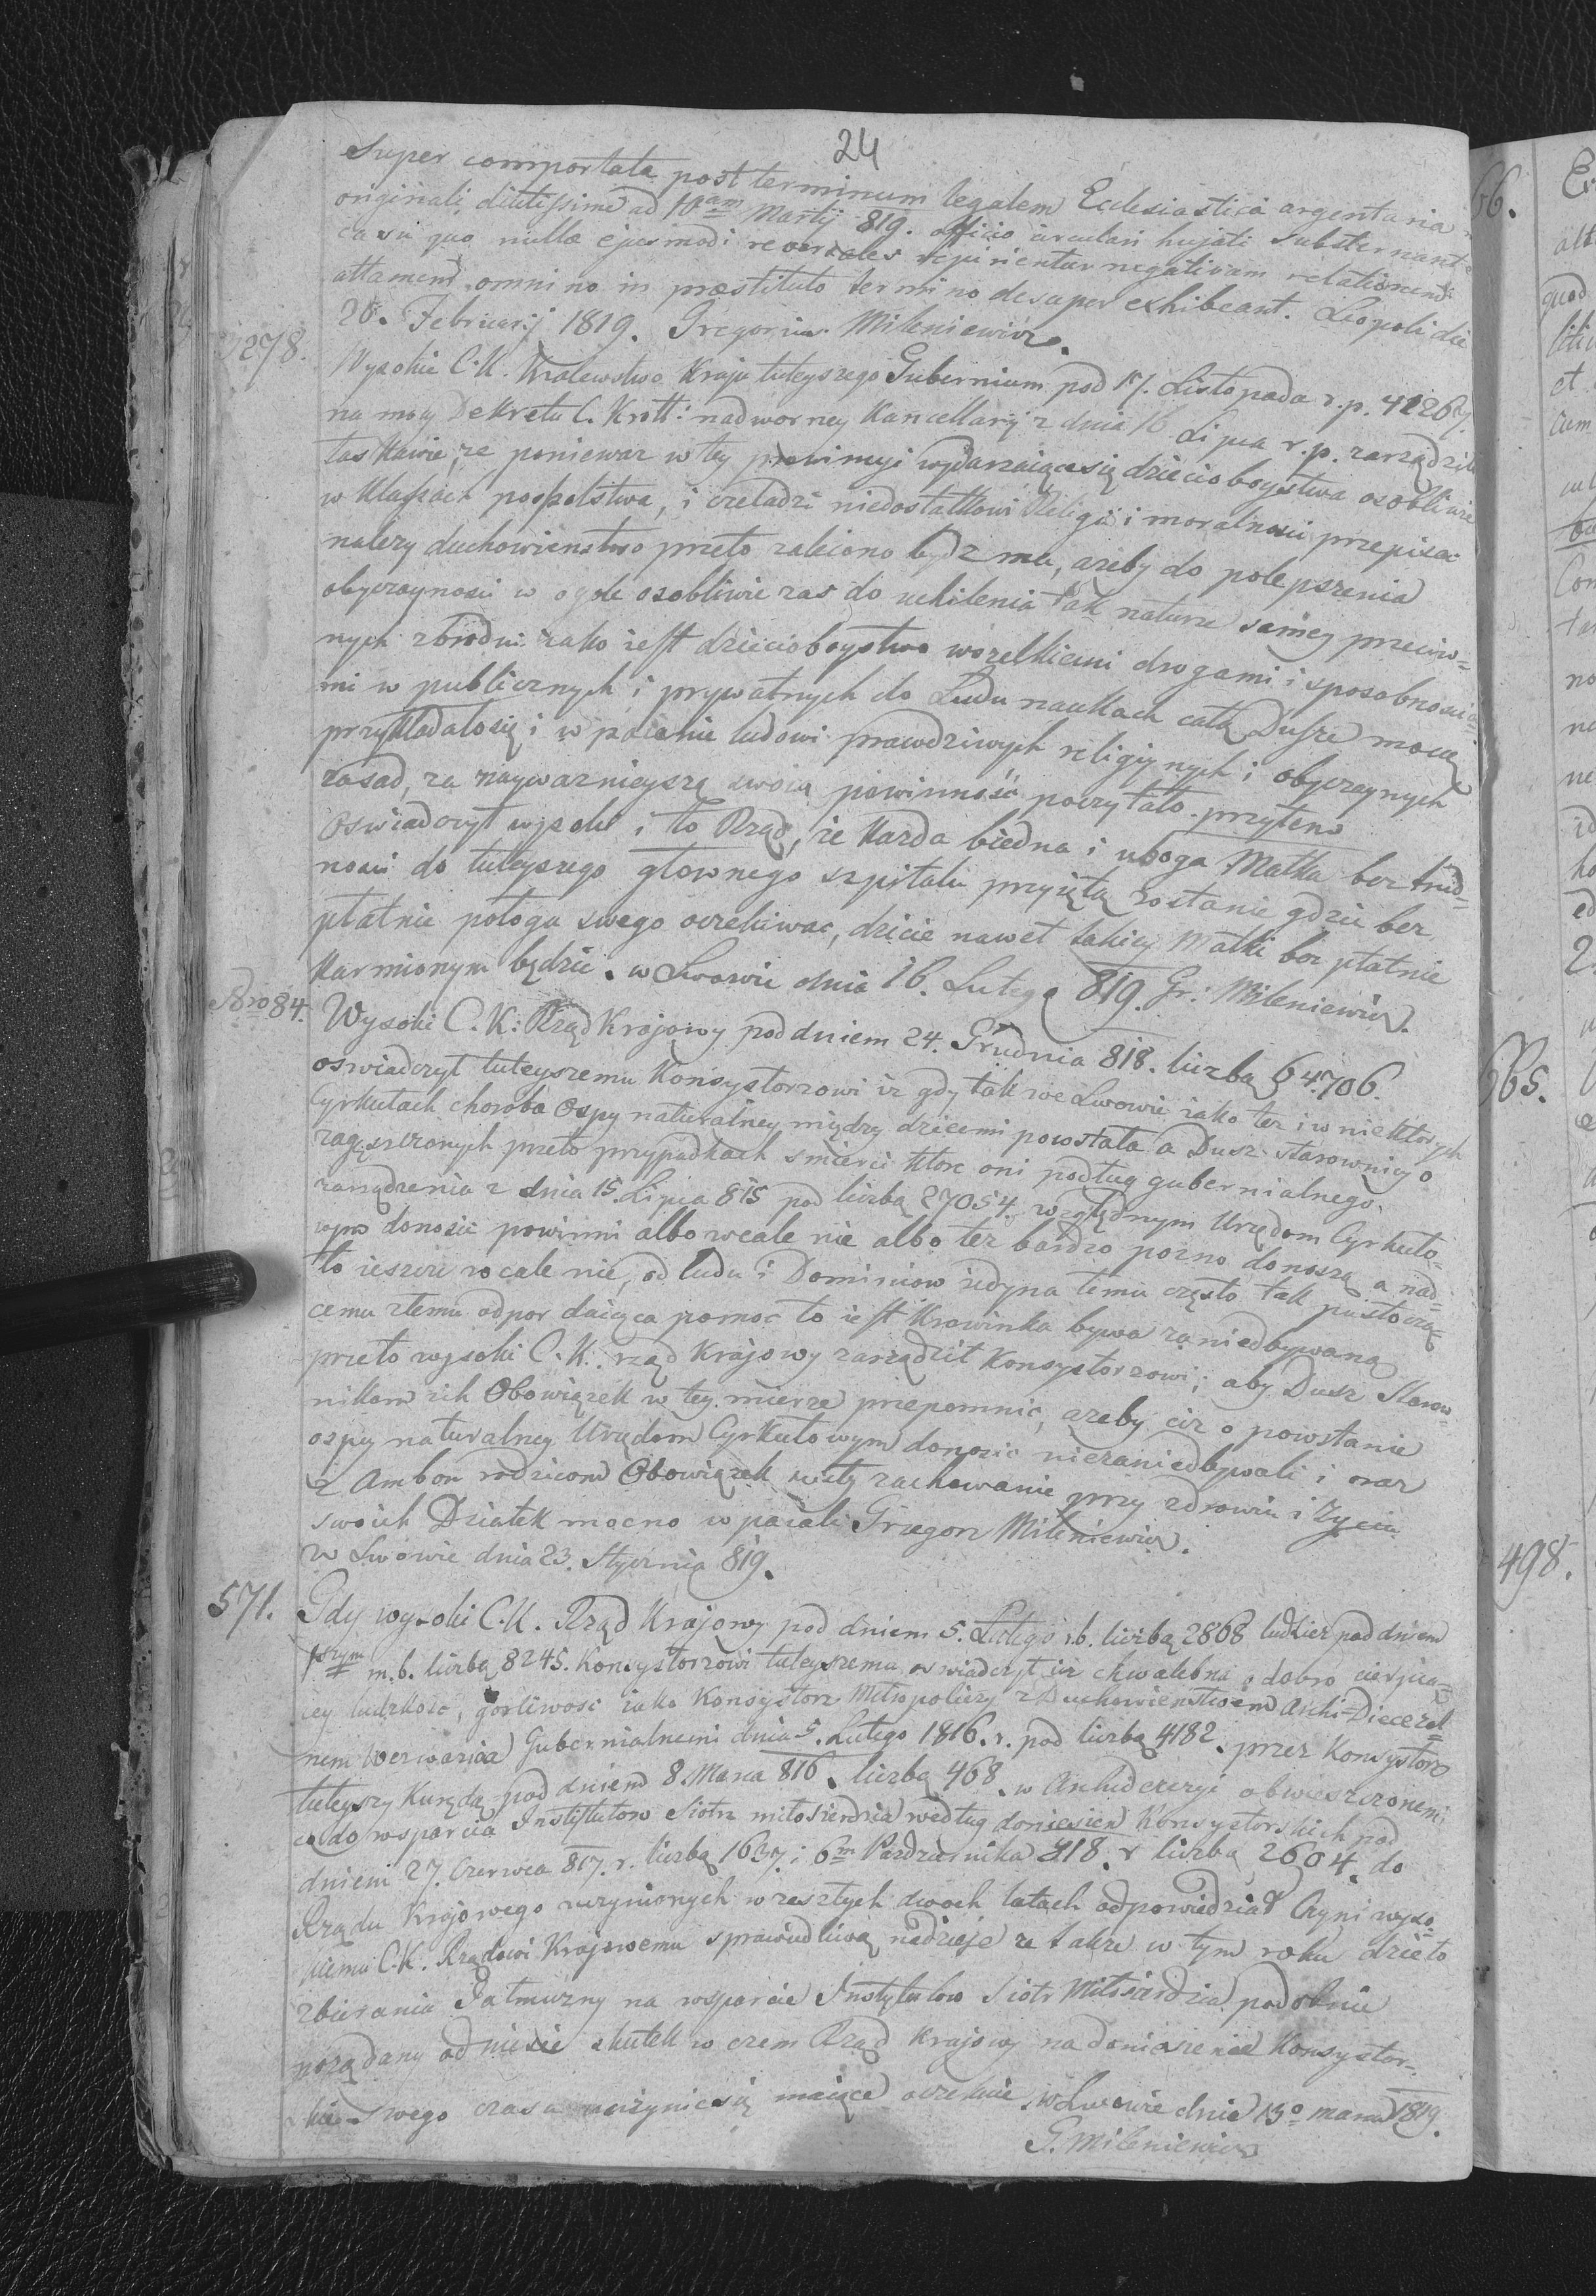 24
Super comportata post terminum legalem Ecclesiastica argentaria
originali ad 10am Martij 819. officio circulari hujati substernant
casu quo nullae ejusmodi reversales reperirentur negativam relationem
attamen omnino in praestituto termino desuper exhibeant. Leopoli die
20. Februarij 1819. Gregorius Mileniewicz.
278. Wysokie C.K. Kralewstwo Kraju tuteyszego Gubernium pod 17. Listopada r.p.
na mocy Dekretu C. Krol: nadworney Kancellaryi z dnia 16 Lipca r.p. zarządziło
łaskawie, ze poniewaz w tey prowincyi wydarzaiące się dziecioboystwa osobliwie
w Klassach pospolstwa, i czeladzi niedostatkowi Religii i moralnosci przepisać
nalezy duchowienstwo przeto zalecono bydz ma, azeby do polepszenia
obyczaynosci w ogole osobliwie zas do uchilenia tak naturze samey przeciw=
nych zbrodni iako iest dzieciobоystwo wszelkiemi drogami i sposobnoscia=
mi w publicznych i prywatnych do Ludu naukach całą Duszę mocą
przykładało się i wpaianie ludowi prawdziwych religiynych i obyczaynych
zasad, za naywaznieyszą swoią powinność poczytało. przytem
Oswiadczył wysoki i to Rząd, że Kazda biedna i uboga Matka bez trud=
nosci do tuteyszego głownego szpitalu przyiętą zostanie gdzie bez
płatnie połogu swego oczekiwac, dziecie nawet takiey Matki bez płatnie
Karmionym będzie. w Lwowie dnia 16. Lutego 819. Gr: Mileniewicz.
Nro 84. Wysoki C.K. Rząd Krajowy pod dniem 24. Grudnia 818. liczbą 64.706.
oswiadczył tuteyszemu Konsystorzowi iz gdy tak we Lwowie iako tez i w niektorych
Cyrkułach choroba Ospy naturalney między dziecmi powstała a Dusz starownicy o
zagęszczonych przeto przypadkach smierci ktore oni podług gubernialnego
zarządzenia z dnia 15. Lipca 815 pod liczbą 27054. względnym Urzędom Cyrkuło=
wym donosić powinni albo wcale nie albo tez bardzo pozno donoszą a nad=
to ieszcze wcale nie, od ludu i Dominiow iedyna temu często tak pustoszą=
cemu złemu odpor daiąca pomoc to iest Krowinka bywa zaniedbywana
przeto wysoki C.K. rząd Krajowy zarządził Konsystorzowi; aby Dusz Starow=
nikom ich Obowiązek w tey mierze przepomnic, azeby ciz o powstanie
ospy naturalney Urzędom Cyrkułowym donosic niezaniedbywali i oraz
z Ambon rodzicom Obowiązek zachowanie przy zdrowiu i Zyciu
swoich Dziatek mocno wpaiali Grzegorz Mileniewicz.
w Lwowie dnia 23. Stycznia 819.
571. Gdy wysoki C.K. Rząd Krajowy pod dniem 5. Lutego r.b. liczbą 2868 tudziez pod dniem
1szym m.b. liczbą 8245. Konsystorzowi tuteyszemu oswiadczył iz chwalebna o dobro cierpią=
cey ludzkosc, gorliwosc iako Konsystorz Metropoliczy z Duchowienstwem Archi=Diecezal=
nem Wezwania Gubernialnemi dnia 5. Lutego 1816. r. pod liczbą 4182. przez Konsystorz
tuteyszy Kurędą pod dniem 8. Marca 816. liczbą 468. w Archidiecezyi obwieszczonemi
co do wsparcia Instytutow Siotr miłosierdzia według doniesien Konsystorskich pod
dniem 27. Czerwca 817. r. liczbą 1637. i 6m Pazdziernika 818. r liczbą 2604. do
Rządu Krajowego uczynionych w zeszłych dwoch latach odpowiedział Czyni wyso=
kiemu C.K. Rządowi Krajowemu sprawiedliwą nadzieje ze takze w tym roku dzieło
zbierania Jałmuzny na wsparcie Instytutow Siotr Miłosierdzia podobnie
pożądany odniesie skutek w czem Rząd Krajowy na doniesienie Konsystor=
skie swego czasu uczynic się maiące oczekuie. w Lwowie dnia 13o marca 1819.
G. Mileniewicz
66.
665.
498.